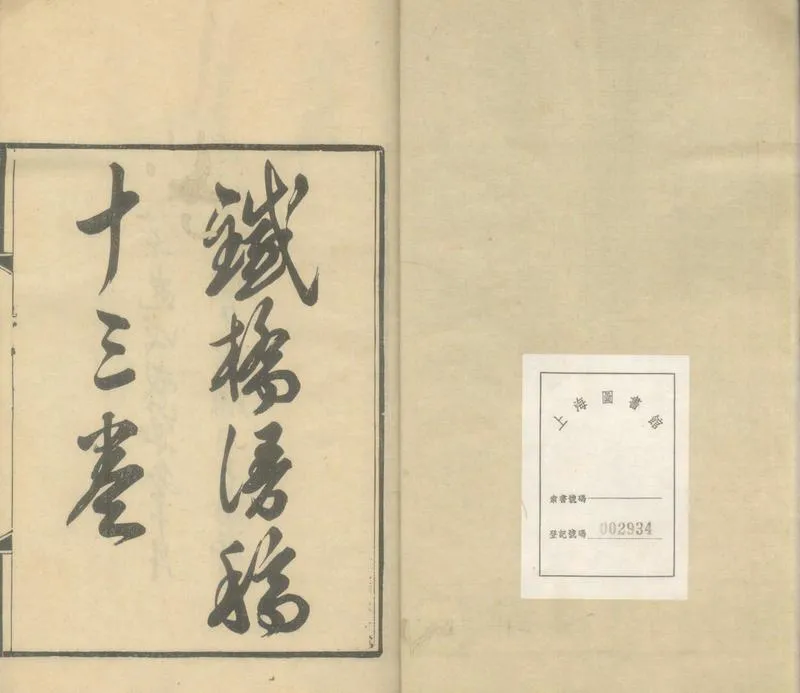 鐵橋漫稿
十三卷
上海圖書館
索書號碼
登記號碼 002934